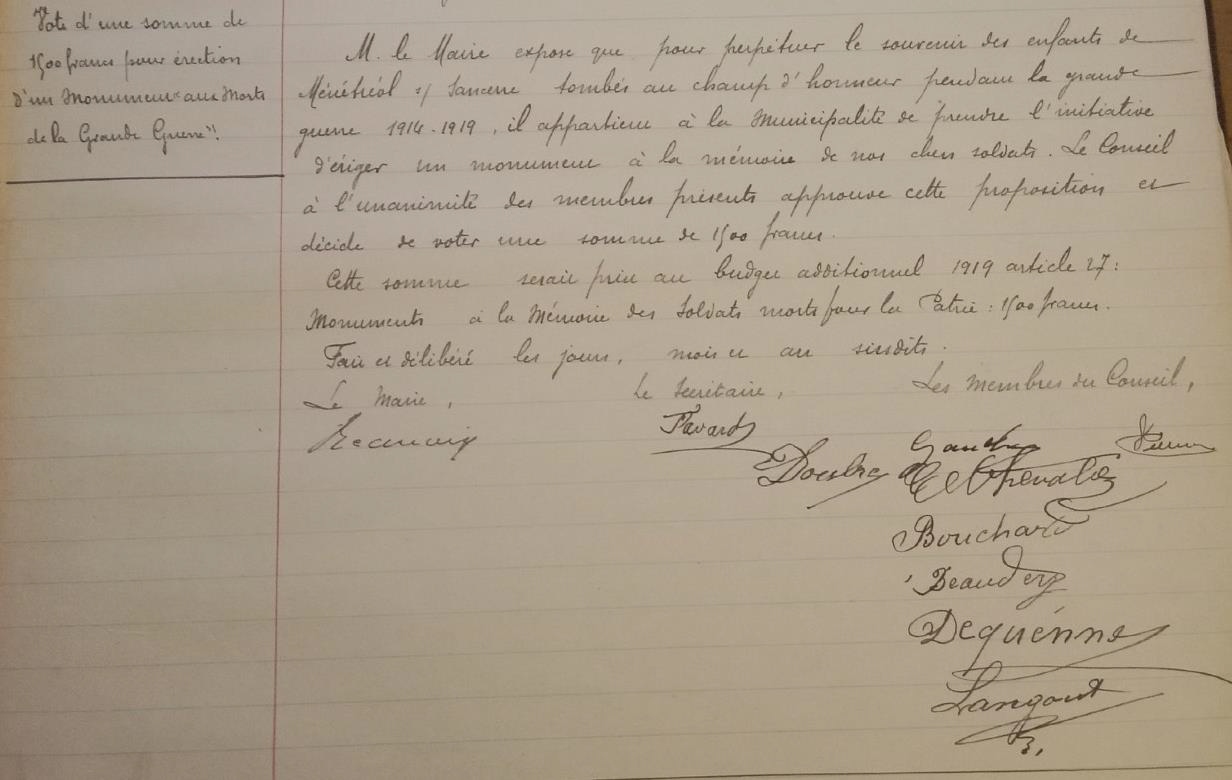 Vote d'une somme de
1500 francs pour érection
d'un Monument "aux Morts
de la Grande Guerre".
M. le Maire expose que pour perpétuer le souvenir des enfants de
Ménétréol s/ Sancerre tombés au champ d'honneur pendant la grande
guerre 1914-1919, il appartient à la Municipalité de prendre l'initiative
d'ériger un monument à la mémoire de nos chers soldats. Le Conseil
à l'unanimité des membres présents approuve cette proposition et
décide de voter une somme de 1500 francs.
Cette somme serait prise au budget additionnel 1919 article 27:
Monuments à la Mémoire des Soldats morts pour la Patrie : 1500 francs.
Fait et délibéré les jours, mois et an susdits.
Le Maire, Le Secrétaire, Les membres du Conseil,
Favard
Chevalier
Bouchard
Dequénne
Langout